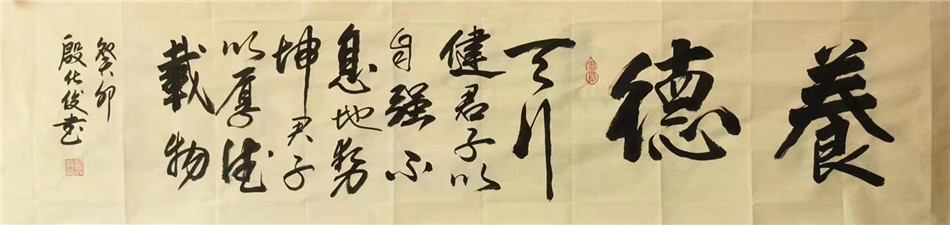 養德
天行
健君子以
自强不
息地势
坤君子
以厚德
載物
癸卯
殷化俊书